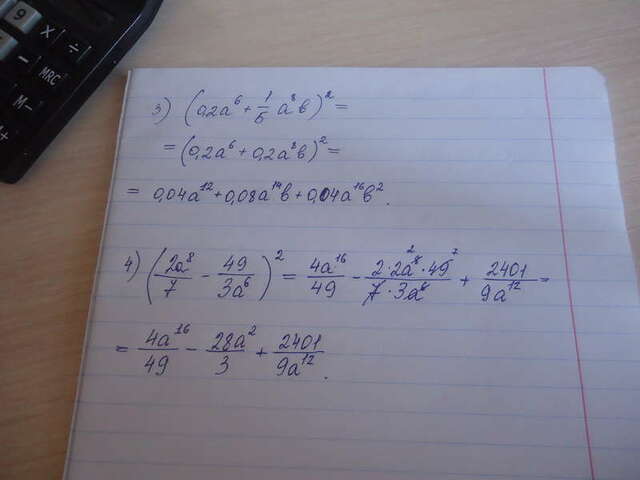 9
X ÷
- MRC
M-
M+
3) (0,2a⁶ + 1/5 a⁸b)² =
= (0,2a⁶ + 0,2a⁸b)² =
= 0,04a¹² + 0,08a¹⁴b + 0,04a¹⁶b².
4) (2a⁸/7 - 49/3a⁶)² = 4a¹⁶/49 - 2·2a⁸·49/7·3a⁶ + 2401/9a¹² =
= 4a¹⁶/49 - 28a²/3 + 2401/9a¹².